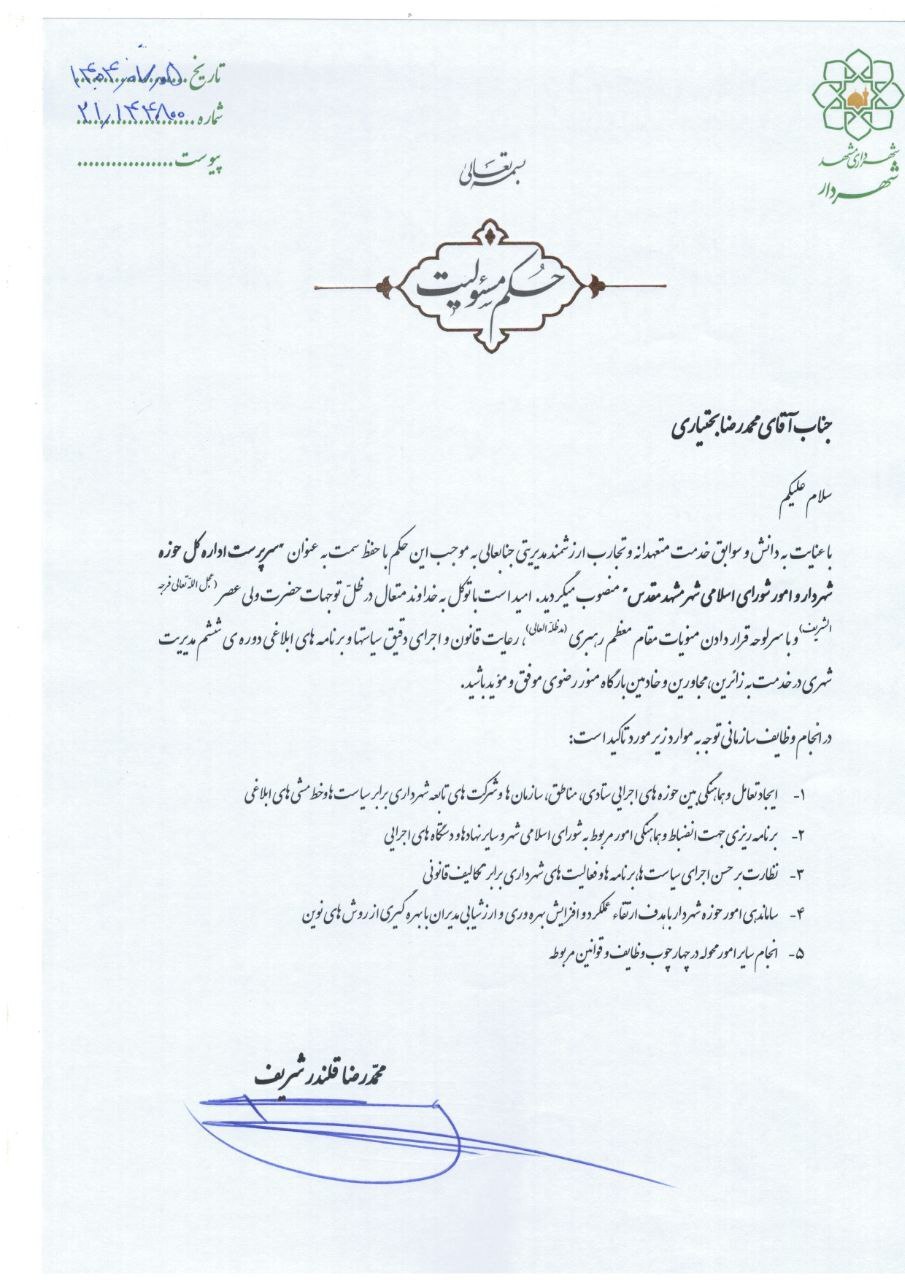 شهرداری مشهد
شهردار
تاریخ
شماره ۲۱/۱۴۴۸۰۰
پیوست
بسمه تعالی
حکم مسئولیت
جناب آقای محمدرضا بختیاری
سلام علیکم
با عنایت به دانش و سوابق خدمت متعهدانه و تجارب ارزشمند مدیریتی جنابعالی به موجب این حکم با حفظ سمت به عنوان "سرپرست اداره کل حوزه
شهردار و امور شورای اسلامی شهر مشهد مقدس" منصوب میگردید. امید است با توکل به خداوند متعال در ظلّ توجهات حضرت ولی عصر (عجل الله تعالی فرجه
الشریف) و با سرلوحه قرار دادن منویات مقام معظم رهبری (مدظله العالی)، رعایت قانون و اجرای دقیق سیاستها و برنامه های ابلاغی دوره ی ششم مدیریت
شهری در خدمت به زائرین، مجاورین و خادمین بارگاه منور رضوی موفق و مؤید باشید.
در انجام وظایف سازمانی توجه به موارد زیر مورد تاکید است:
۱- ایجاد تعامل و هماهنگی بین حوزه های اجرایی ستادی، مناطق، سازمان ها و شرکت های تابعه شهرداری برابر سیاست ها و خط مشی های ابلاغی
۲- برنامه ریزی جهت انضباط و هماهنگی امور مربوط به شورای اسلامی شهر و سایر نهادها و دستگاه های اجرایی
۳- نظارت بر حسن اجرای سیاست ها، برنامه ها و فعالیت های شهرداری برابر تکالیف قانونی
۴- ساماندهی امور حوزه شهردار با هدف ارتقاء عملکرد و افزایش بهره وری و ارزشیابی مدیران با بهره گیری از روش های نوین
۵- انجام سایر امور محوله در چهارچوب وظایف و قوانین مربوطه
محمّدرضا قلندر شریف